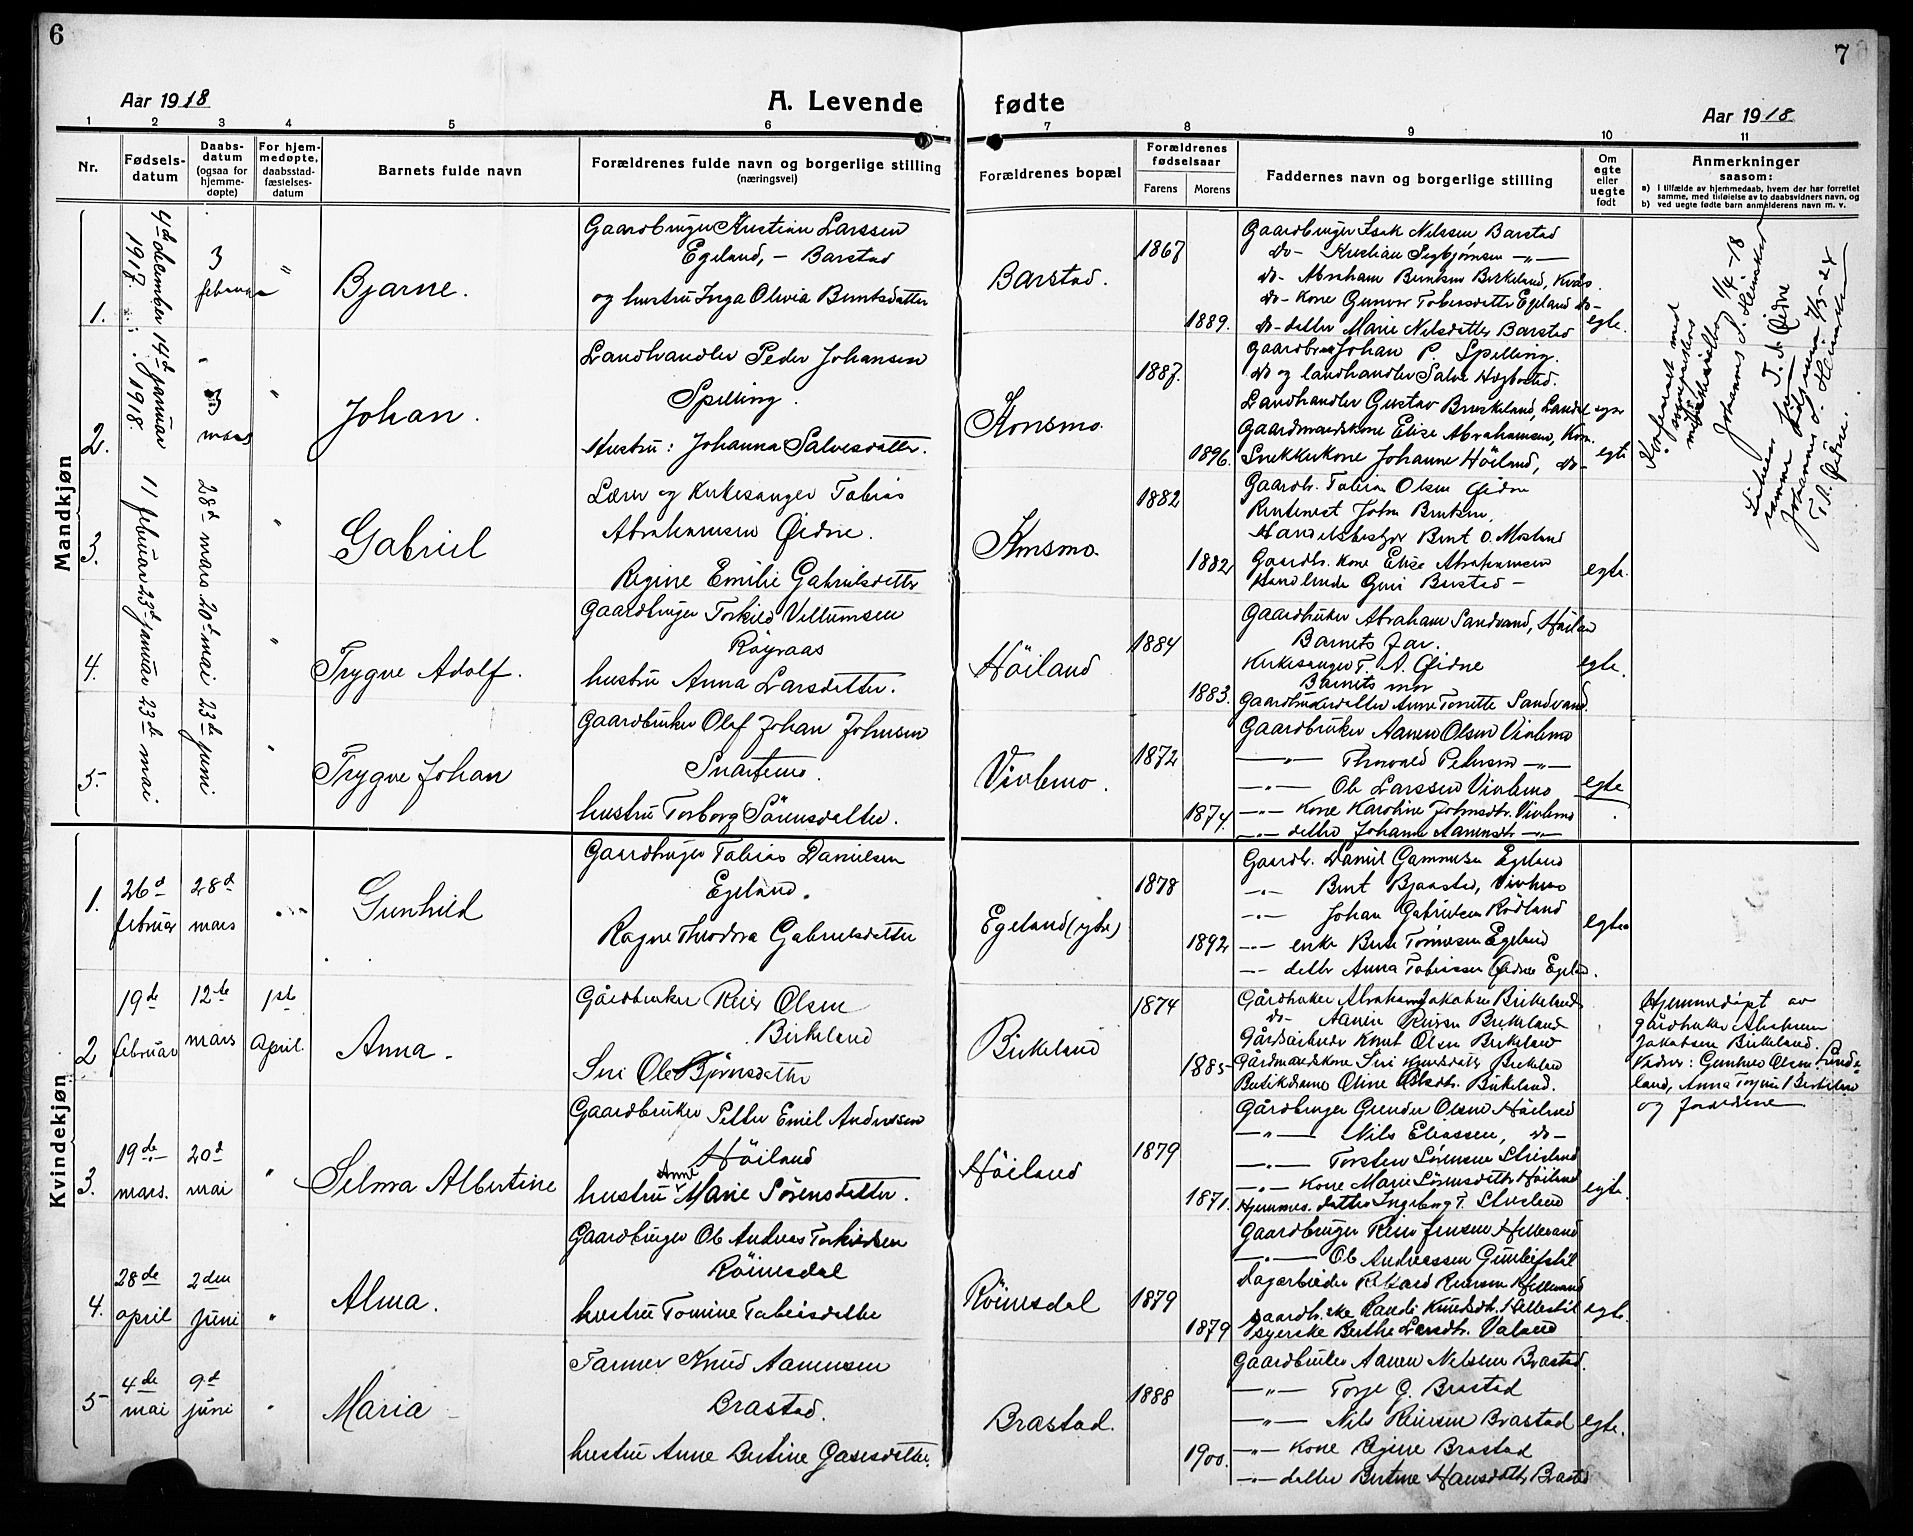 6
7
Aar 1918
A. Levende fødte
Aar 1918
1 2 3 4 5 6 7 8 9 10 11
Nr.
Fødsels-
datum
Daabs-
datum
(ogsaa for
hjemme-
døpte)
For hjem-
medøpte,
daabsstad-
fæstelses-
datum
Barnets fulde navn
Forældrenes fulde navn og borgerlige stilling
(næringsvei)
Forældrenes bopæl
Forældrenes
fødselsaar
Farens
Morens
Faddernes navn og borgerlige stilling
Om
egte
eller
uegte
født
Anmerkninger
saasom:
a) i tilfælde av hjemmedaab, hvem der har forrettet
samme, med tilføielse av to daabsvidners navn, og
b) ved uegte fødte barn anmelderens navn m. v.
Mandkjøn
1.
4de december
1917
3
februar
"
Bjarne.
Gaardbruger Kristian Larssen
Egeland, - Barstad
og hustru Inga Olivia Berntsdatter
Barstad.
1867
1889.
Gaardbruger Isak Nilssen Barstad
do- Kristian Sigbjørnsen -"-
do- Abraham Berntsen Birkeland, Kvås.
do- Kone Gunvor Tobiasdatter Egeland do-
do- datter Marie Nilsdatter Barstad
egte.
2.
14de januar
1918
3
mars
"
Johan.
Landhandler Peder Johansen
Spilling.
Hustru: Johanna Salvesdatter.
Konsmo.
1887.
1896.
Gaardbr. Johan P. Spilling.
do og landhandler Salve Hægbostad.
Landhandler Gustav Birkeland,
Gaardmandskone Elise Abrahamsen, Kon.
Snekkerkone Johanne Høiland, do-
egte
Konferert med
sogneprestens
ministerialbog 1/4 -18
Johannes J. Heimsker
T. A. Øidne
Johannes J. Heimsker
T. A. Øidne.
3.
11 februar
28de mars
"
Gabriel
Lærer og Kirkesanger Tobias
Abrahamsen Øidne.
Regine Emilie Gabrielsdatter
Konsmo.
1882
1882
Gaardbr. Tobias Olsen Øidne
Rentenist John Berntsen,
Handelsbestyr Bernt O. Mosland
Gaardbr. kone Elise Abrahamsen
Handlende Guri Barstad -
egte.
4.
23de januar
20de mai
"
Trygve Adolf.
Gaardbruger Torkild Villumsen
Røyraas
hustru Anna Larsdatter.
Høiland
1884
1883.
Gaardbruker Abraham Sandvand, Høiland
Barnets far.
Kirkesanger T. A. Øidne
Barnets mor
Gaardbrukerdatter Anne Tonette Sandvand.
egte.
5.
23de mai
23de juni
"
Trygve Johan
Gaardbruker Olaf Johan Johnsen
Snartemo.
hustru Torborg Sørensdatter.
Vivlemo.
1872
1874.
Gaardbruker Aanen Olsen Vivlemo
-"- Thorvald Petersen -"-
-"- Ole Larssen Vivlemo
-"- Kone Karoline Johnsdtr. Vivlemo
-"- datter Johanne Aanensdtr. -"-
egte
Kvindekjøn
1.
26de
februar
28de
mars
"
Gunhild
Gaardbruger Tobias Danielsen
Egeland.
Ragne Theodora Gabrielsdatter
Egeland (ytre)
1878
1892
Gaardbr. Daniel Egeland
-"- Bernt Bjaastad, Vivlemo
-"- Johan Gabrielsen Rødland
-"- enke Berte Tønnesen Egeland
-"- datter Anna Tobiassen Øidne Egeland.
egte.
2
19de
februar
12te
mars
1ste
April.
Anna -
Gårdbruker Reier Olsen
Birkeland
Siri Ole Bjørnsdatter
Birkeland
1874
1885-
Gårdbruker Abraham Jakobsen Birkeland
do- Aanen Reiersen Birkeland
Gårdarbeider Knut Olsen Birkeland
Gårdmandskone Siri Knudsdatter Birkeland
Butikdame Oline Olsdtr. Birkeland.
Hjemmedøpt av
gårdbruker Abraham
Jakobsen Birkeland.
Vidner: Gunhild Olsen Lunde-
land, Anna Birkeland
og forældrene
3.
19de
mars.
20de
mai
"
Selma Albertine
Gaardbruker Petter Emil Andersen
Høiland
hustru Anne Marie Sørensdatter.
Høiland
1879
1871.
Gårdbruger Gunder Olsen Høiland
-"- Nils Eliassen, do-
-"- Torsten Sørensen Stusland
-"- Kone Marie Sørensdatter Høiland
Hjemmev. datter Ingeborg T. Stusland
egte.
4.
28de
april
2den
juni
"
Alma.
Gaardbruger Ole Andreas Torkildsen
Røinesdal
hustru Tomine Tobiasdatter
Røinesdal
1879
1879
Gaardbruger Reier Jensen Hellevand
-"- Ole Andreassen Gunleifstil
Dagarbeider Rikard Reiersen Hellevand
gaardbr.ske Randi Knudsdtr. Hellestil
syerske Berthe Larsdtr. Valand
egte.
5
4de
mai
9de
juni
"
Maria -
Farmer Knud Aanensen
Brastad.
hustru Anne Bertine Aasesdatter.
Brastad.
1888
1900.
Gaardbruker Aanen Nilsen Brastad.
-"- Torje G. Brastad
-"- Nils Reiersen Brastad
-"- Kone Regine Brastad
-"- datter Bertine Hansdatter Brastad
egte.